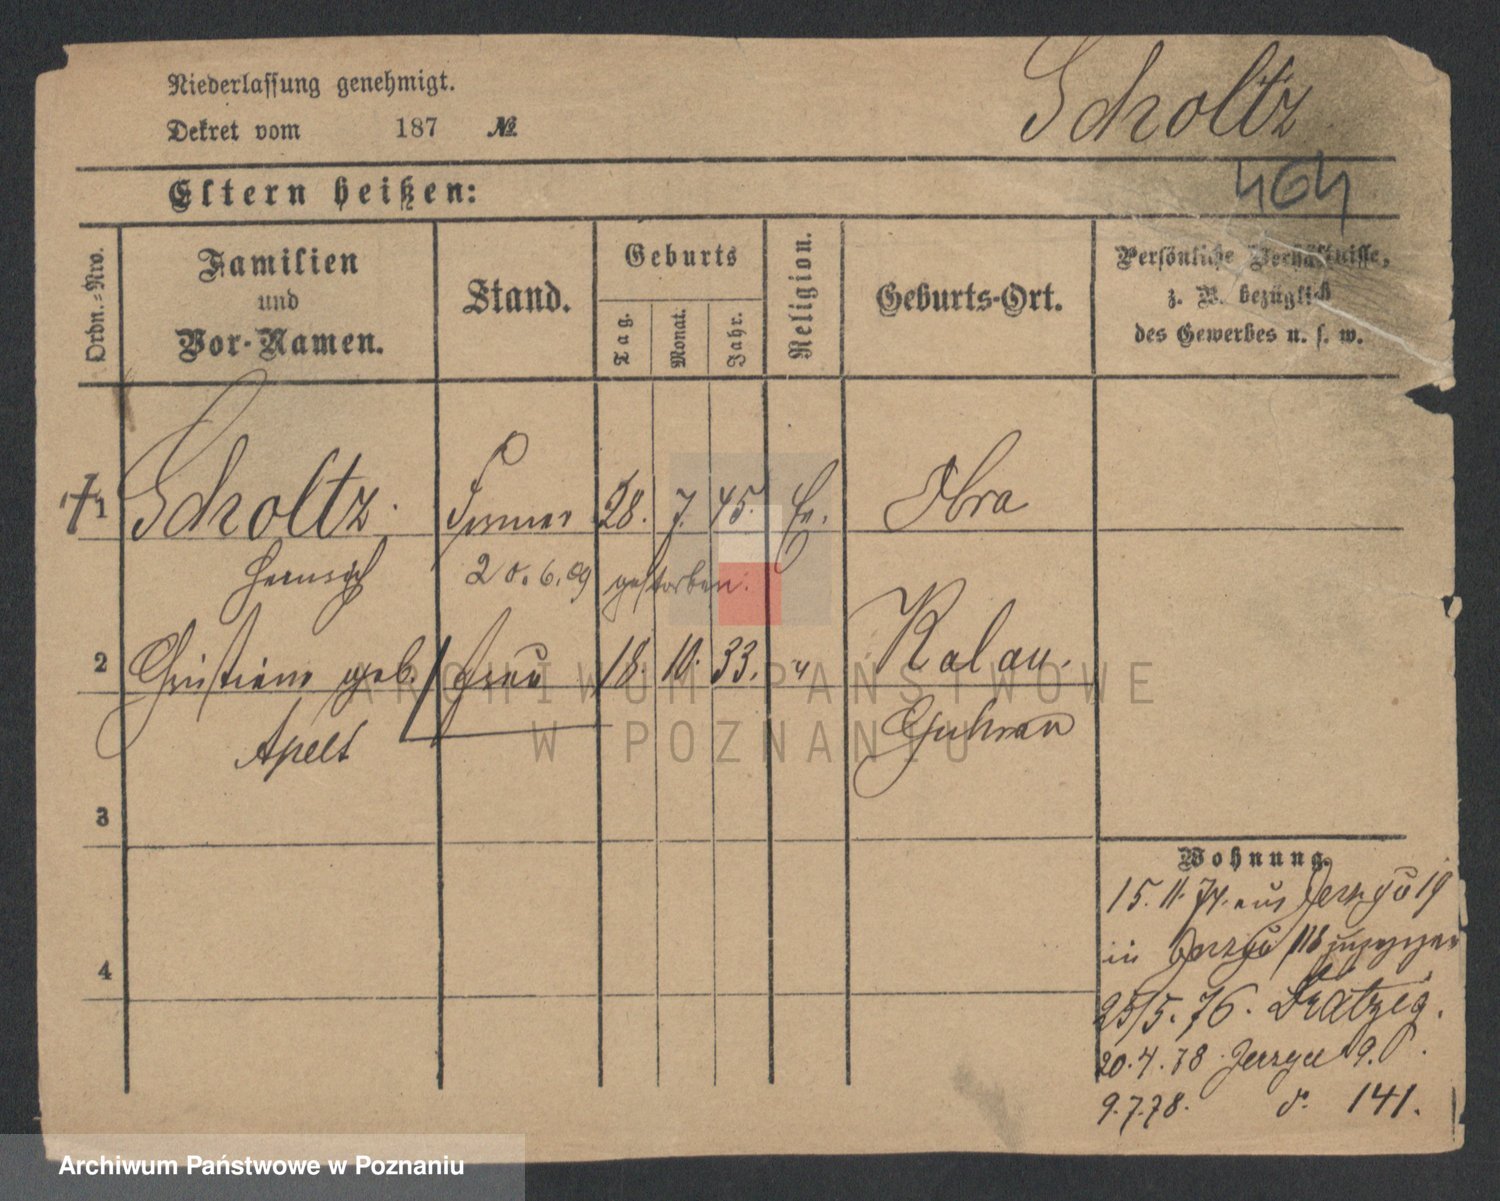 Niederlassung genehmigt.
Scholtz
Dekret vom 187 №
464
Eltern heißen:
Ordn.=Nro.
Familien
und
Vor-Namen.
Stand.
Geburts
Tag.
Monat.
Jahr.
Religion.
Geburts-Ort.
Persönliche Verhältnisse,
z. B. bezüglich
des Gewerbes u. s. w.
† 1 Scholtz. 28. 7. 45. Ev. Obra
20.6.09 gestorben.
2 Christiane geb. Frau 18. 10. 33. " Kalau.
Apelt Guhrau
3
4
Wohnung.
15. 11. 74. aus Jerzyce 19
in Jerzyce 118
25/5. 76.
20.4.78. Jerzyce 9.
9.7.78. do. 141.
ARCHIWUM PAŃSTWOWE
W POZNANIU
Archiwum Państwowe w Poznaniu